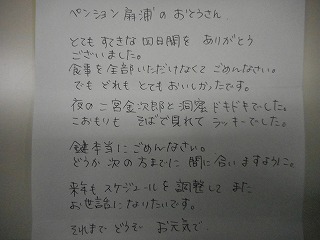 ペンション扇浦の おとうさん
とても すてきな 四日間を ありがとう
ございました。
食事を全部いただけなくて ごめんなさい。
でも どれも とてもおいしかったです。
夜の二宮金次郎と洞窟 ドキドキでした。
こおもりも そばで見れて ラッキーでした。
鍵本当に ごめんなさい。
どうか 次の方までに 間に合いますように。
来年も スケジュールを 調整して また
お世話になりたいです。
それまで どうぞ お元気で。